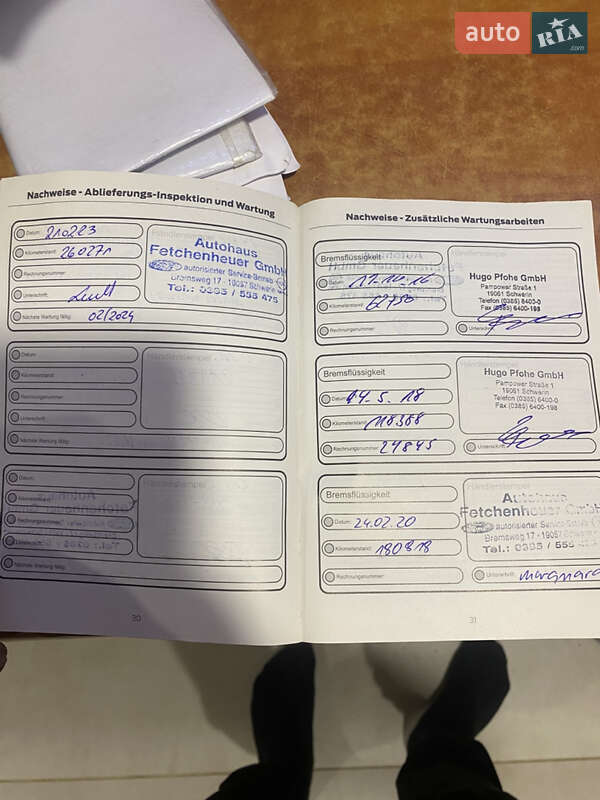 auto RIA.com
Nachweise - Ablieferungs-Inspektion und Wartung
Datum: 210223
Kilometerstand: 260271
Rechnungsnummer:
Unterschrift:
Nächste Wartung fällig: 02/2024
Autohaus
Fetchenheuer GmbH
autorisierter Service-Betrieb
Bremsweg 17 - 19057 Schwerin
Tel.: 0385 / 555 475
Datum:
Kilometerstand:
Rechnungsnummer:
Unterschrift:
Nächste Wartung fällig:
Händlerstempel
Datum:
Kilometerstand:
Rechnungsnummer:
Unterschrift:
Nächste Wartung fällig:
Händlerstempel
30
Nachweise - Zusätzliche Wartungsarbeiten
Bremsflüssigkeit
Datum:
Kilometerstand: 62750
Rechnungsnummer:
Hugo Pfohe GmbH
Pampower Straße 1
19061 Schwerin
Telefon (0385) 6400-0
Fax (0385) 6400-198
Unterschrift:
Bremsflüssigkeit
Datum: 14.5.18
Kilometerstand: 118388
Rechnungsnummer: 24845
Händlerstempel
Hugo Pfohe GmbH
Pampower Straße 1
19061 Schwerin
Telefon (0385) 6400-0
Fax (0385) 6400-198
Unterschrift:
Bremsflüssigkeit
Datum: 24.02.20
Kilometerstand: 180818
Rechnungsnummer:
Händlerstempel
Autohaus
Fetchenheuer GmbH
autorisierter Service-Betrieb
Bremsweg 17 - 19057 Schwerin
Tel.: 0385 / 555 475
Unterschrift:
31